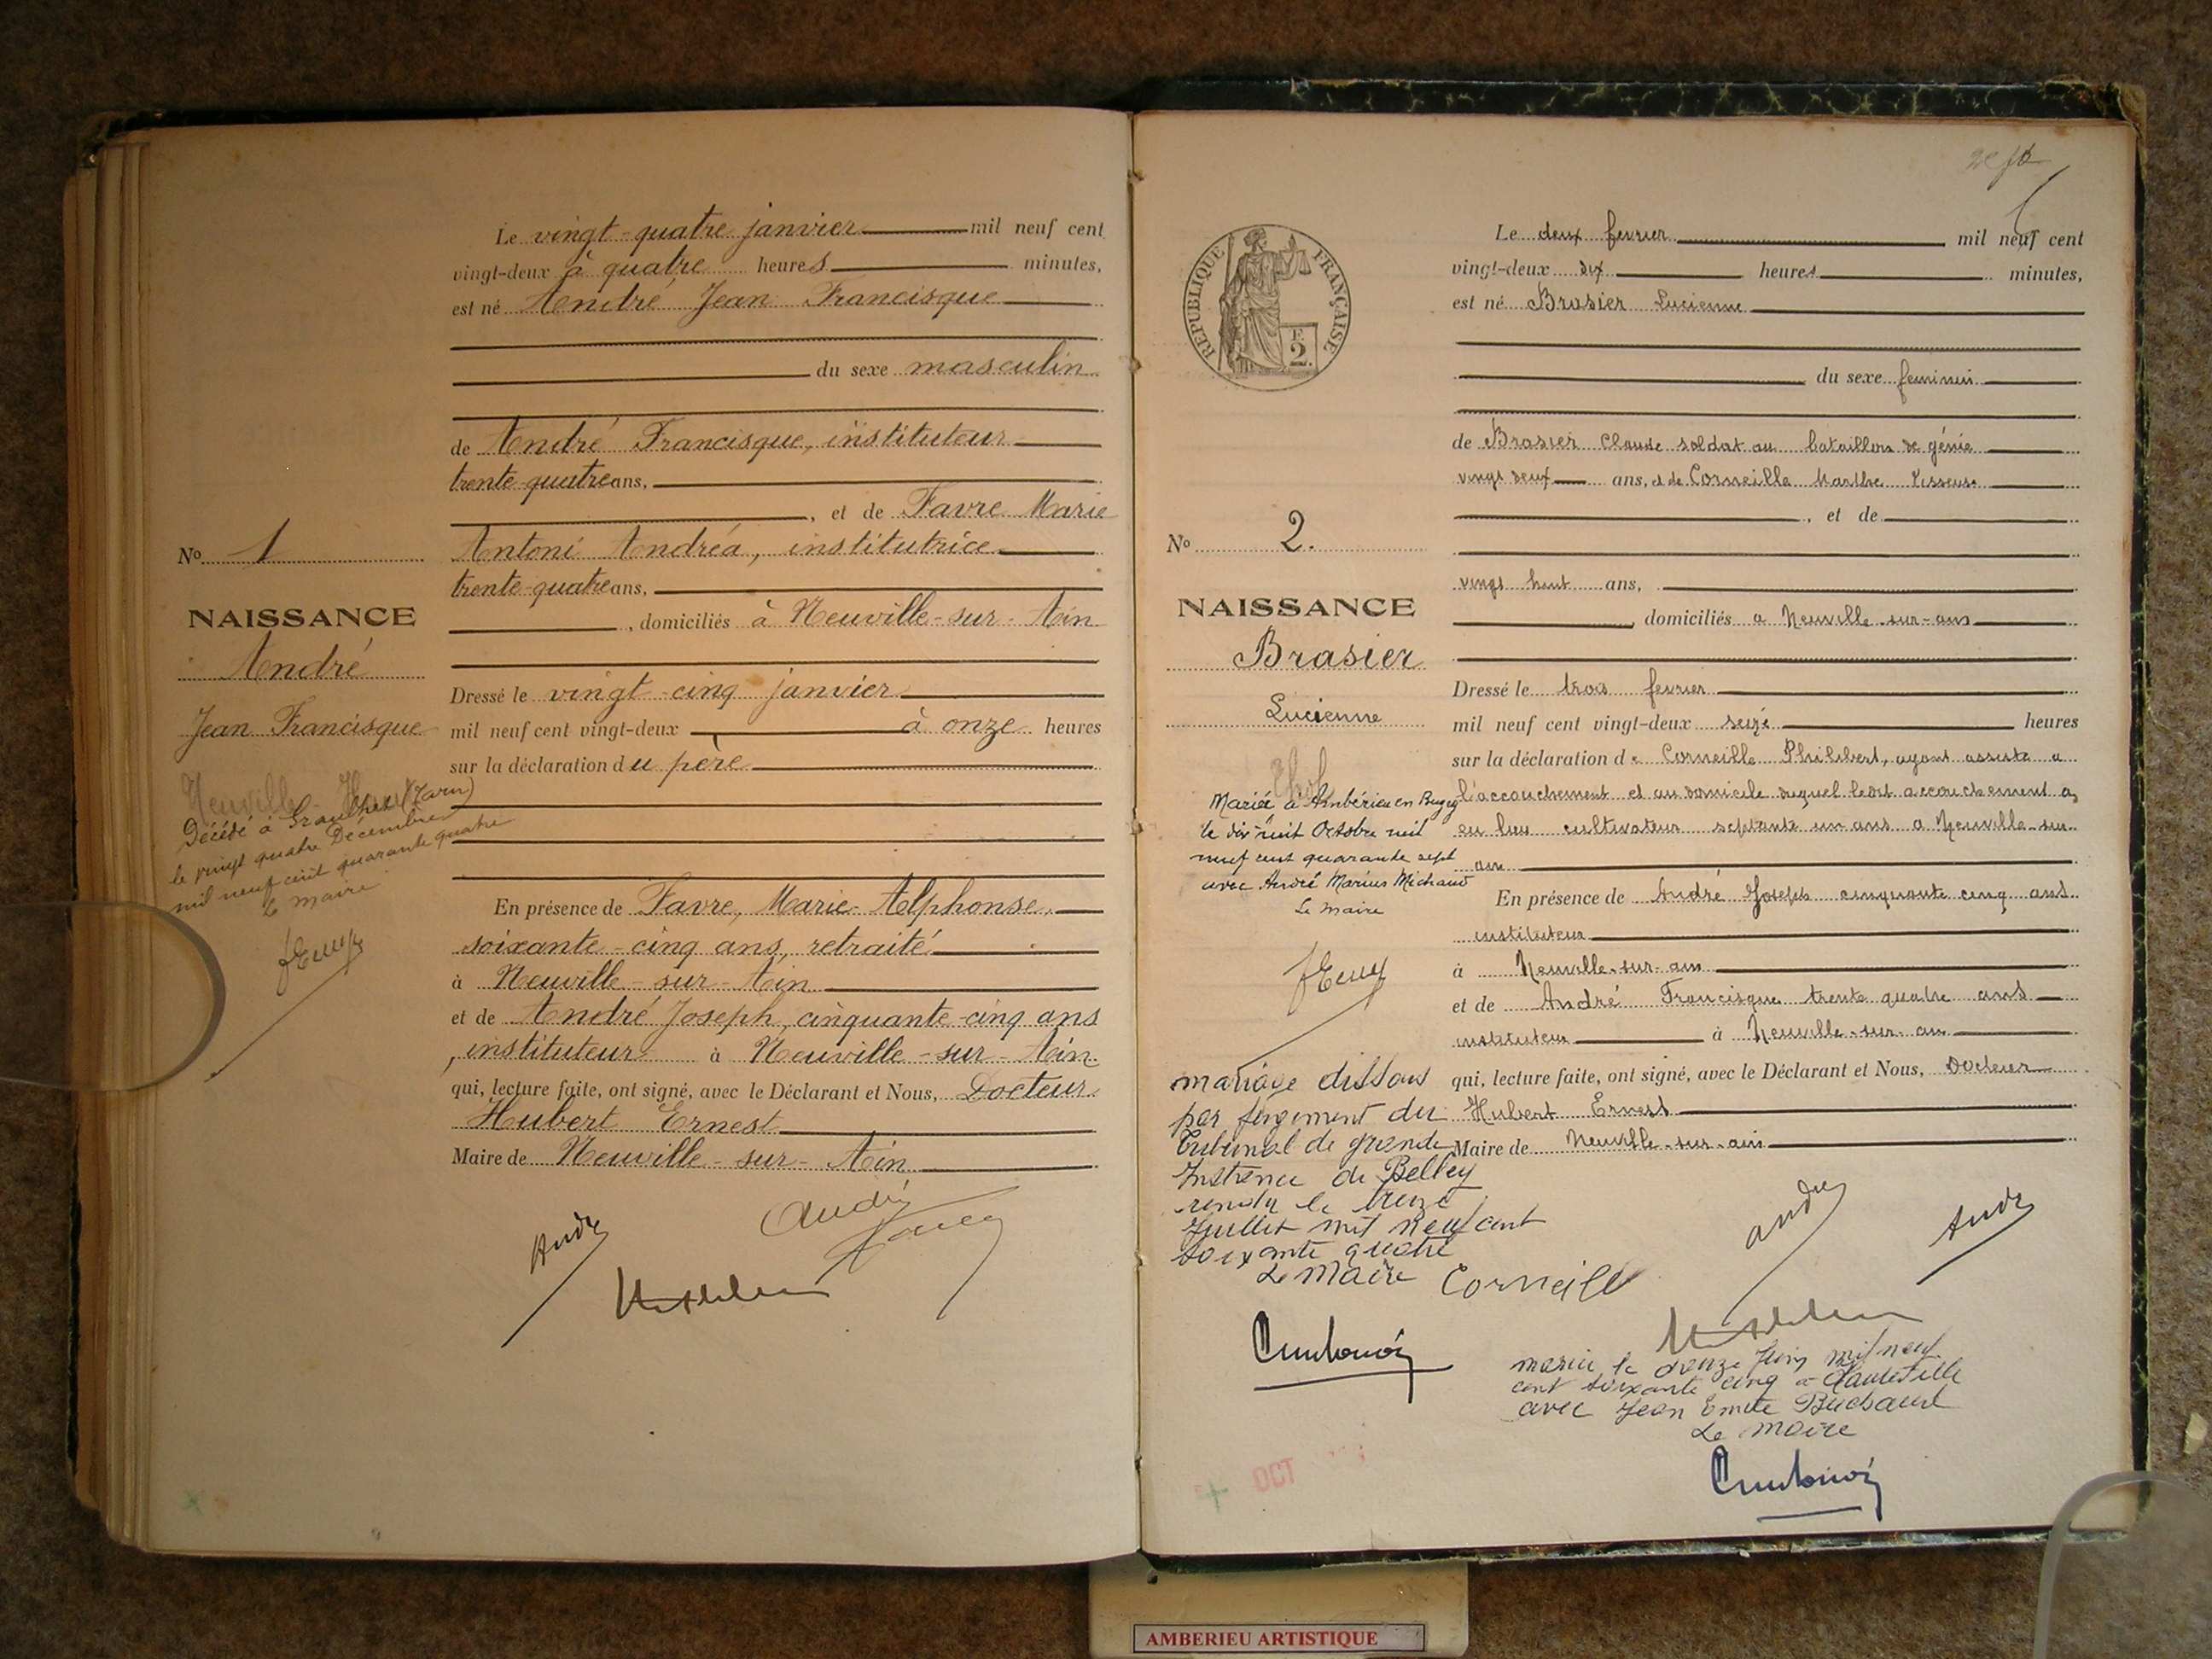 Le vingt-quatre janvier mil neuf cent
vingt-deux à quatre heures minutes,
est né André Jean Francisque
du sexe masculin
de André Francisque, instituteur
trente-quatre ans,
, et de Favre Marie
Antoni Andréa, institutrice
trente-quatre ans,
, domiciliés à Neuville-sur-Ain
Dressé le vingt-cinq janvier
mil neuf cent vingt-deux à onze heures
sur la déclaration du père
En présence de Favre, Marie-Alphonse,
soixante-cinq ans, retraité
à Neuville-sur-Ain
et de André Joseph, cinquante-cinq ans
, instituteur à Neuville-sur-Ain
qui, lecture faite, ont signé, avec le Déclarant et Nous, Docteur
Hubert Ernest
Maire de Neuville-sur-Ain
André
André
No 1
NAISSANCE
André
Jean Francisque
Neuville
Décédé à Graulhet (Tarn)
le vingt quatre Décembre
mil neuf cent quarante quatre
Le maire
REPUBLIQUE FRANÇAISE
2
Le deux fevrier mil neuf cent
vingt-deux dix heures minutes,
est né Brasier Lucienne
du sexe feminin
de Brasier Claude soldat au bataillon de génie
vingt deux ans, et de Corneille Marthe Tisseuse
, et de
vingt huit ans,
, domiciliés a Neuville-sur-ain
Dressé le trois fevrier
mil neuf cent vingt-deux seize heures
sur la déclaration de Corneille Philibert, ayant assisté a
l'accouchement et au domicile duquel ledit accouchement a
eu lieu cultivateur septante un ans a Neuville-sur-
ain
En présence de André Joseph cinquante cinq ans
instituteur
à Neuville-sur-ain
et de André Francisque trente quatre ans
instituteur à Neuville-sur-ain
qui, lecture faite, ont signé, avec le Déclarant et Nous, Docteur
Hubert Ernest
Maire de Neuville-sur-ain
André
André
Corneille
No 2.
NAISSANCE
Brasier
Lucienne
Mariée à Ambérieu en Bugey
le dix huit Octobre mil
neuf cent quarante sept
avec André Marius Michaud
Le maire
mariage dissous
par jugement du
Tribunal de grande
Instance de Belley
rendu le treize
Juillet mil neuf cent
soixante quatre
Le Maire
mariée le douze Juin mil neuf
cent soixante cinq à Hauteville
avec Jean Emile
Le Maire
OCT
AMBERIEU ARTISTIQUE